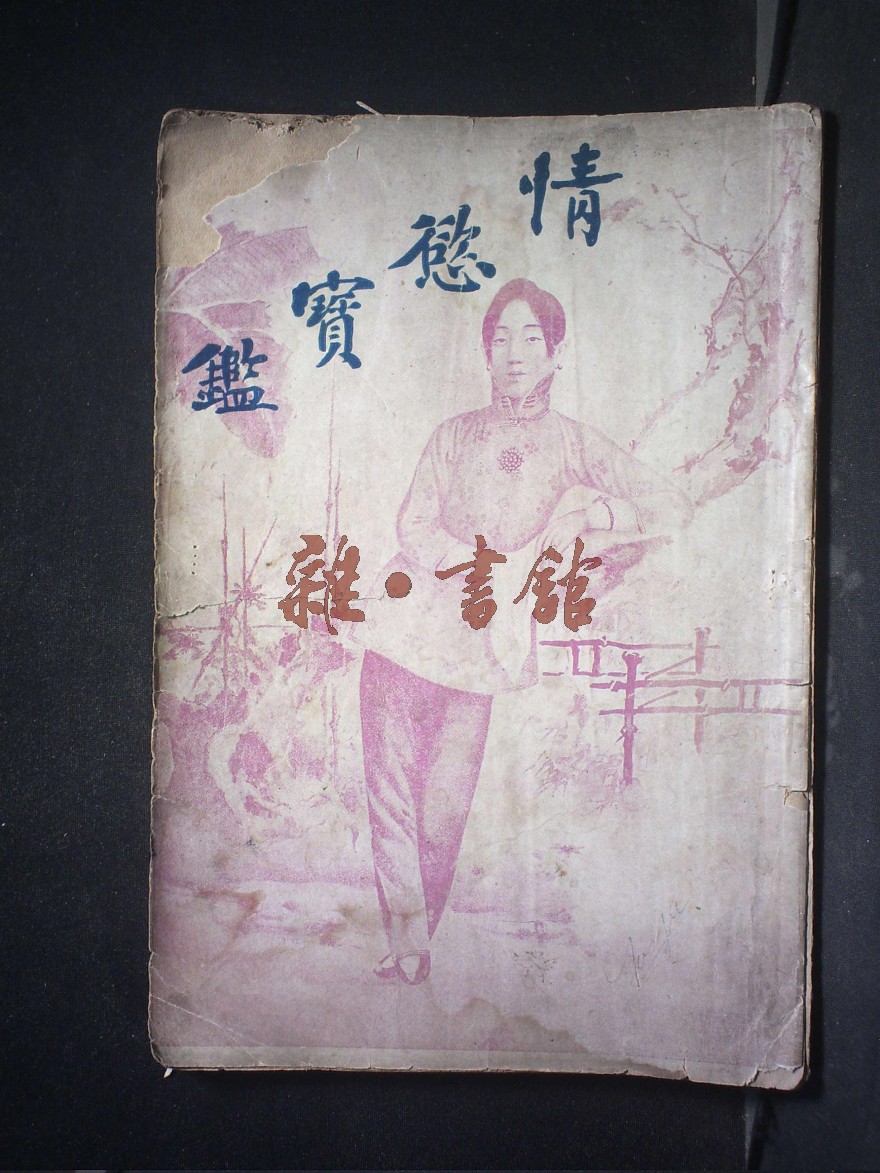 情慾寶鑑
雜·書館